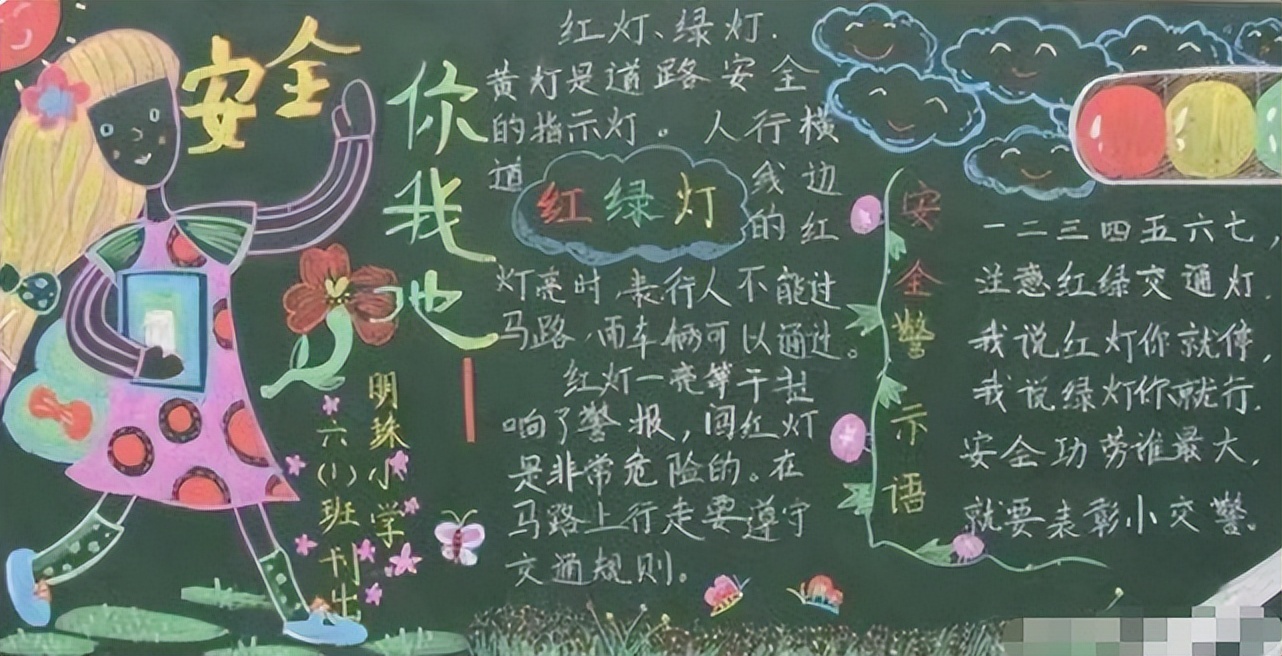 安全
你我他
明珠小学
六(1)班刊出
红灯、绿灯.
黄灯是道路安全
的指示灯。人行横
道 线边
红绿灯
的红
灯亮时,表行人不能过
马路,而车辆可以通过。
红灯一亮等于拉
响了警报,闯红灯
是非常危险的。在
马路上行走要遵守
交通规则。
安全警示语
一二三四五六七,
注意红绿交通灯.
我说红灯你就停,
我说绿灯你就行.
安全功劳谁最大,
就要表彰小交警。